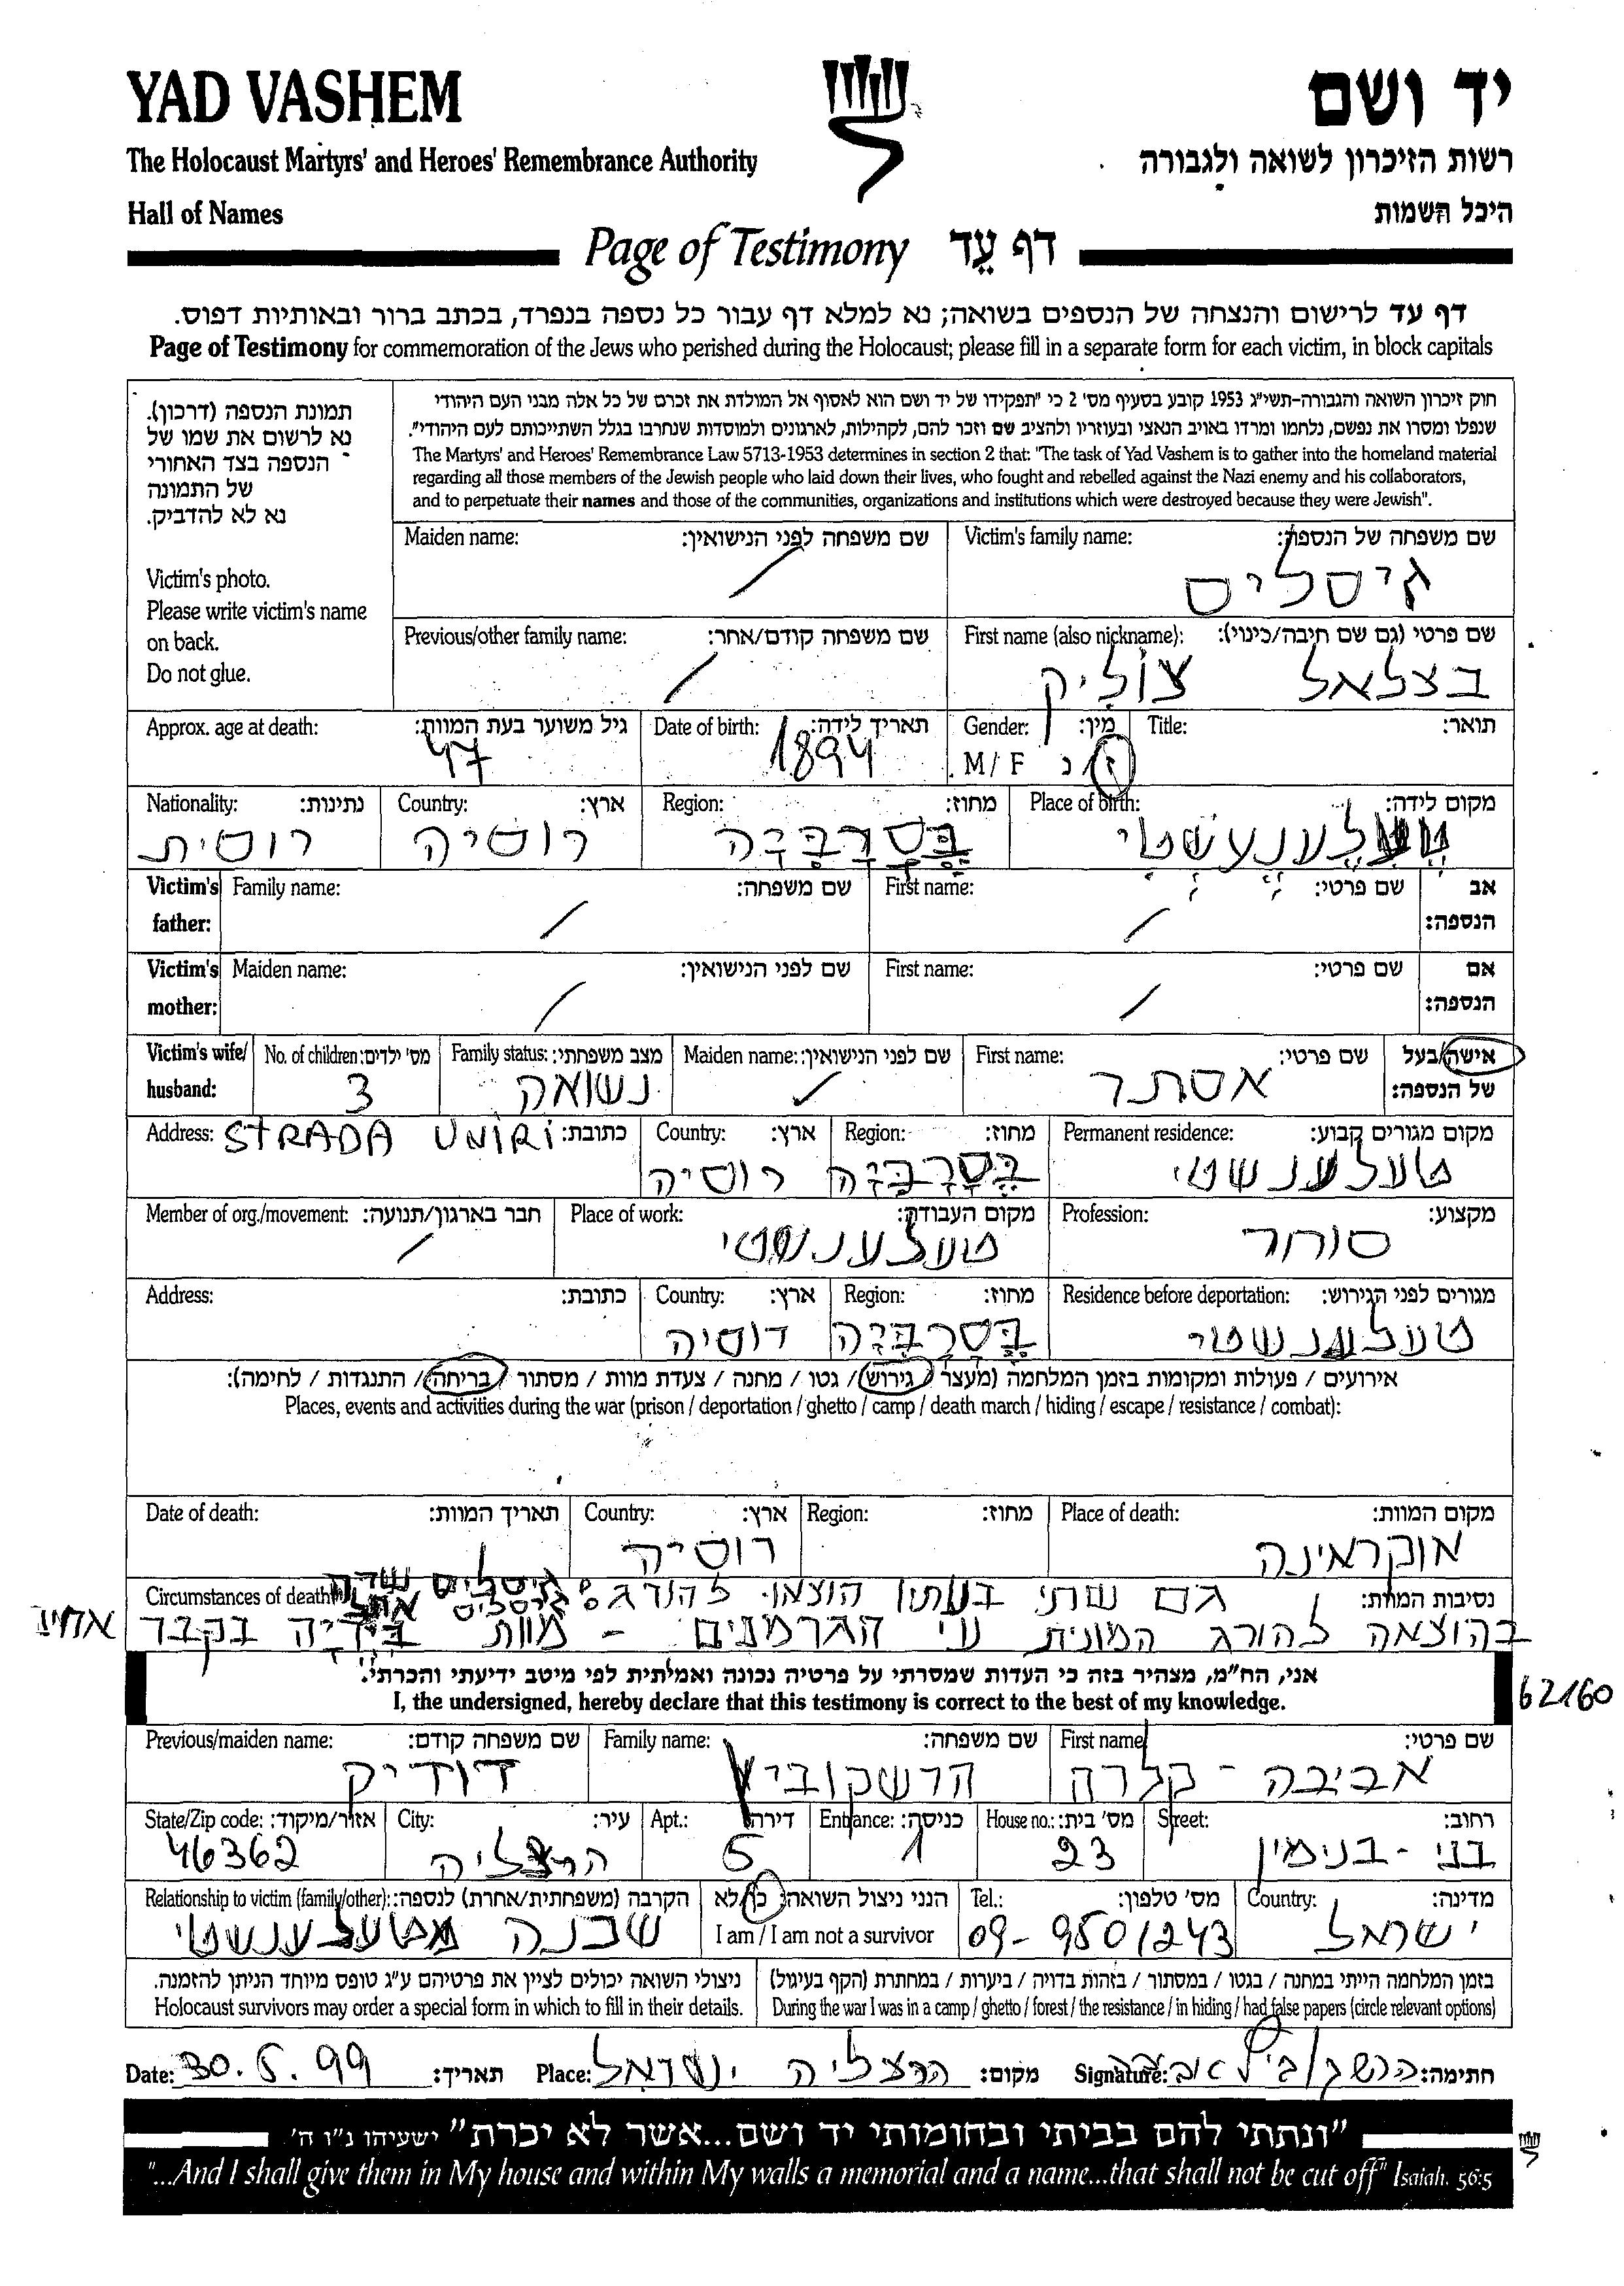 YAD VASHEM
יד ושם
The Holocaust Martyrs' and Heroes' Remembrance Authority
רשות הזיכרון לשואה ולגבורה
Hall of Names
היכל השמות
Page of Testimony דף עֵד
דף עד לרישום והנצחה של הנספים בשואה; נא למלא דף עבור כל נספה בנפרד, בכתב ברור ובאותיות דפוס.
Page of Testimony for commemoration of the Jews who perished during the Holocaust; please fill in a separate form for each victim, in block capitals
תמונת הנספה (דרכון).
נא לרשום את שמו של
הנספה בצד האחורי
של התמונה
נא לא להדביק.
Victim's photo.
Please write victim's name
on back.
Do not glue.
חוק זיכרון השואה והגבורה-תשי"ג 1953 קובע בסעיף מס' 2 כי "תפקידו של יד ושם הוא לאסוף אל המולדת את זכרם של כל אלה מבני העם היהודי
שנפלו ומסרו את נפשם, נלחמו ומרדו באויב הנאצי ובעוזריו ולהציב שם וזכר להם, לקהילות, לארגונים ולמוסדות שנחרבו בגלל השתייכותם לעם היהודי".
The Martyrs' and Heroes' Remembrance Law 5713-1953 determines in section 2 that: "The task of Yad Vashem is to gather into the homeland material
regarding all those members of the Jewish people who laid down their lives, who fought and rebelled against the Nazi enemy and his collaborators,
and to perpetuate their names and those of the communities, organizations and institutions which were destroyed because they were Jewish".
Victim's family name: שם משפחה של הנספה:
גיסליס
Maiden name: שם משפחה לפני הנישואין:
/
First name (also nickname): שם פרטי (גם שם חיבה/כינוי):
בצלאל צוֹליק
Previous/other family name: שם משפחה קודם/אחר:
/
Title: תואר:
Gender: מין:
M / F ז/נ
Date of birth: תאריך לידה:
1894
Approx. age at death: גיל משוער בעת המוות:
47
Place of birth: מקום לידה:
Region: מחוז:
בֶּסָרַבִּיָה
Country: ארץ:
רוסיה
Nationality: נתינות:
רוסית
Victim's father: אב הנספה:
First name: שם פרטי: /
Family name: שם משפחה: /
Victim's mother: אם הנספה:
First name: שם פרטי: /
Maiden name: שם לפני הנישואין: /
Victim's wife/ husband: אישה/בעל של הנספה:
First name: שם פרטי:
אסתר
Maiden name: שם לפני הנישואין:
Family status: מצב משפחתי:
נשואה
No. of children: מס' ילדים:
3
Permanent residence: מקום מגורים קבוע:
טעלענשטי
Region: מחוז:
בֶּסָרַבִּיָה
Country: ארץ:
רוסיה
Address: כתובת:
STRADA UNIRI
Profession: מקצוע:
סוחר
Place of work: מקום העבודה:
טעלענשטי
Member of org./movement: חבר בארגון/תנועה:
/
Residence before deportation: מגורים לפני הגירוש:
טעלענשטי
Region: מחוז:
בֶּסָרַבִּיָה
Country: ארץ:
רוסיה
Address: כתובת:
אירועים / פעולות ומקומות בזמן המלחמה (מעצר / גירוש / גטו / מחנה / צעדת מוות / מסתור / בריחה / התנגדות / לחימה):
Places, events and activities during the war (prison / deportation / ghetto / camp / death march / hiding / escape / resistance / combat):
Place of death: מקום המוות:
אוקראינה
Region: מחוז:
Country: ארץ:
רוסיה
Date of death: תאריך המוות:
Circumstances of death: נסיבות המוות:
גם שתי בנותיו הוצאו להורג: גיסליס
בהוצאה להורג המונית ע"י הגרמנים - מוות בירייה בקבר אחים
אני, הח"מ, מצהיר בזה כי העדות שמסרתי על פרטיה נכונה ואמיתית לפי מיטב ידיעתי והכרתי.
I, the undersigned, hereby declare that this testimony is correct to the best of my knowledge.
62160
First name שם פרטי:
אביבה - קלרה
Family name: שם משפחה:
הרשקוביץ
Previous/maiden name: שם משפחה קודם:
דודיק
Street: רחוב:
בני - בנימין
House no.: מס' בית:
23
Entrance: כניסה:
1
Apt.: דירה:
5
City: עיר:
הרצליה
State/Zip code: אזור/מיקוד:
46362
Country: מדינה:
ישראל
Tel.: מס' טלפון:
09-9501243
הנני ניצול השואה: כן/לא
I am / I am not a survivor
Relationship to victim (family/other): הקרבה (משפחתית/אחרת) לנספה:
שכנה מטעלענשטי
בזמן המלחמה הייתי במחנה / בגטו / במסתור / בזהות בדויה / ביערות / במחתרת (הקף בעיגול)
During the war I was in a camp / ghetto / forest / the resistance / in hiding / had false papers (circle relevant options)
ניצולי השואה יכולים לציין את פרטיהם ע"ג טופס מיוחד הניתן להזמנה.
Holocaust survivors may order a special form in which to fill in their details.
Date: 30.5.99 תאריך:
Place: הרצליה ישראל מקום:
Signature: חתימה:
"ונתתי להם בביתי ובחומותי יד ושם...אשר לא יכרת" ישעיהו נ"ו ה'
"...And I shall give them in My house and within My walls a memorial and a name...that shall not be cut off" Isaiah. 56:5